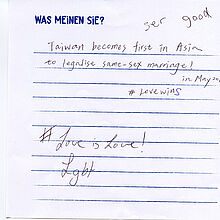 WAS MEINEN SIE?
ser good
Taiwan becomes first in Asia
to legalise same-sex marriage!
in May 20
# Lovewins
# Love is Love!
Lgbt